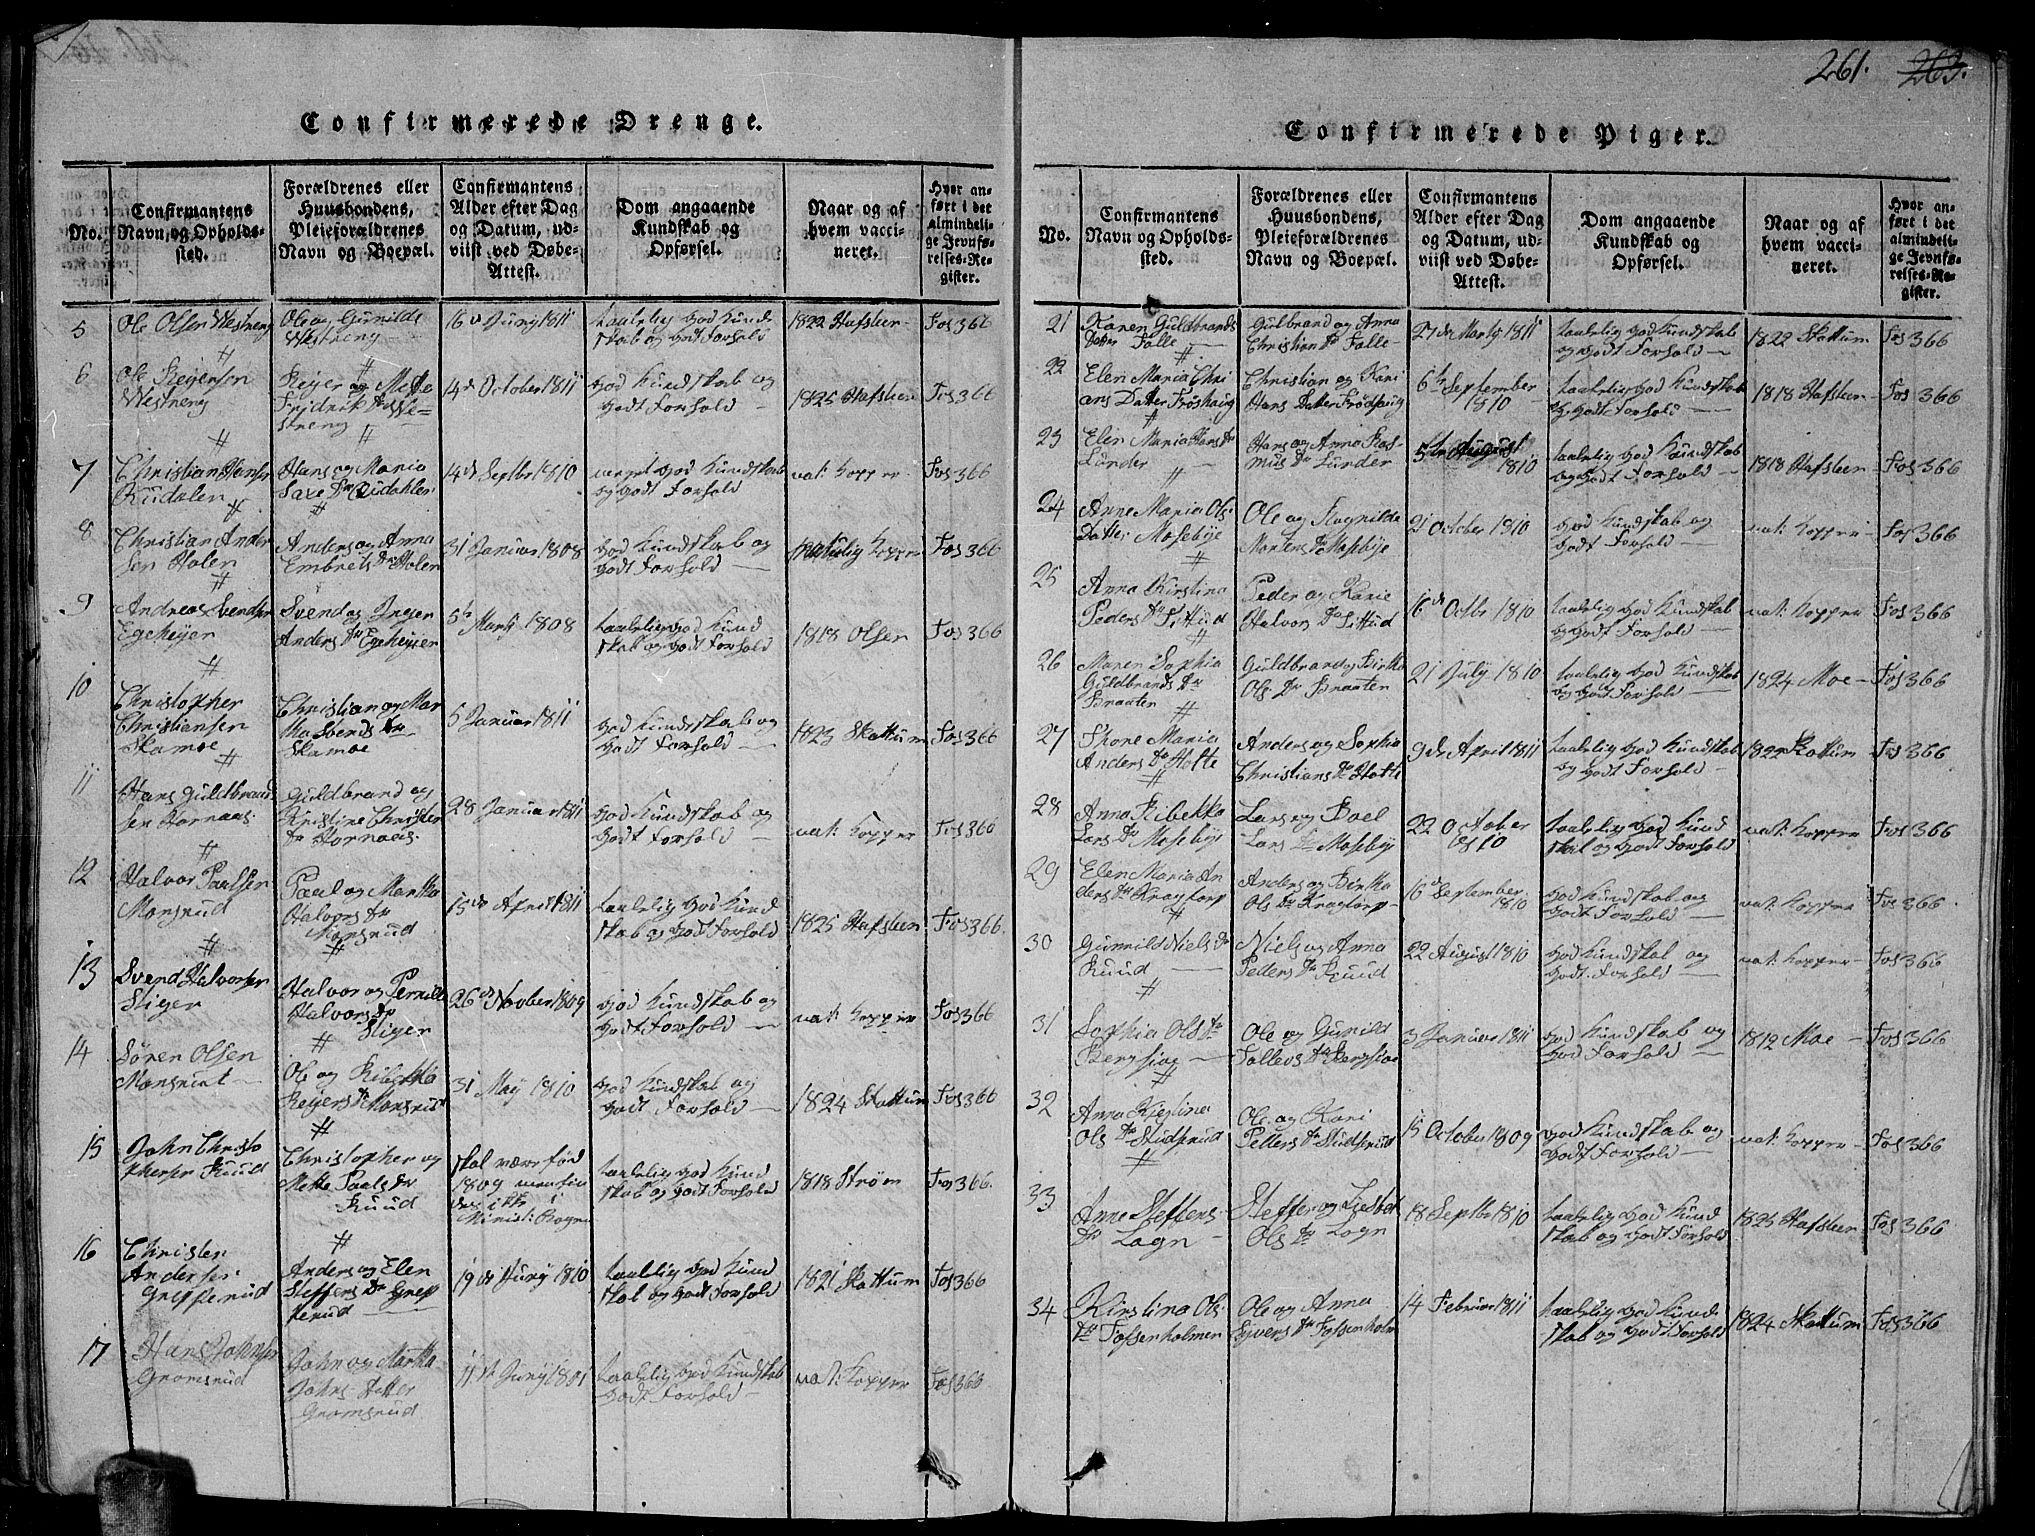 261. 263.
Confirmerede Drenge.
No.
Confirmantens
Navn, og Opholds-
sted.
Forældrenes eller
Huusbondens,
Pleieforældrenes
Navn og Boepæl.
Confirmantens
Alder efter Dag
og Datum, ud-
viist ved Døbe-
Attest.
Dom angaaende
Kundskab og
Opførsel.
Naar og af
hvem vacci-
neret.
Hvor an-
ført i det
Almindeli-
ge Jevnfø-
relses-Re-
gister.
5
Ole Olsen Westreng
Ole og Gunilde
Westreng
16 d Juny 1811
taalelig god Kund
skab og godt Forhold
1822 Hafsteen
Fos 366
6
Ole Reyersen
Westreng
Reyer og Mette
14 d October 1811
god Kundskab og
godt Forhold
1825 Hafsteen
Fos 366
7
Christian Hansen
Rudalen
Hans og Maria
14 d Septbr 1810
meget god Kundskab
og godt Forhold
nat: Kopper
Fos 366
8
Christian Ander
sen Holen
Anders og Anna
Embrets Dr Holen
31 Januar 1808
god Kundskab og
godt Forhold
naturlig Kopper
Fos 366
9
Andreas Svendsen
Egeheyer
Svend og Inger
Anders Dr Egeheyer
5te Marty 1808
taalelig god Kund
skab og godt Forhold
1818 Olsen
Fos 366
10
Christopher
Christiansen
Skamoe
Christian og Mar
Skamoe
5 Januar 1811
god Kundskab og
godt Forhold
1823 Skattum
Fos 366
11
Hans Guldbrand
sen Hornaas
Guldbrand og
Kristine Christen
Dr Hornaas
28 Januar 1811
god Kundskab og
godt Forhold
nat: Kopper
Fos 366
12
Halvor Paulsen
Monsrud
Paul og Martha
Halvors Dr
Monsrud
15 de April 1811
taalelig god Kund
skab og godt Forhold
1825 Hafsteen
Fos 366
13
Svend Halvorsen
Stiger
Halvor og Pernille
Halvors Dr
Stiger
26 d Novber 1809
god Kundskab og
godt Forhold
nat: Kopper
Fos 366
14
Sören Olsen
Monsrud
Ole og Ribekka
Reyers Dr Monsrud
31 May 1810
god Kundskab og
godt Forhold
1824 Skattum
Fos 366
15
John Christo
phersen Ruud
Christopher og
Mette Paals Dr
Ruud
skal være fød
1809 men fin
des ikke i
Minist: Bogen
taalelig god Kund
skab og godt Forhold
1818 Strøm
Fos 366.
16
Christen
Andersen
Grefferud
Anders og Elen
Steffens Dr Greff
erud
19 de Juny 1810
taalelig god Kund
skab og godt Forhold
1821 Skattum
Fos 366
17
Hans Johnsen
Gromsrud
John og Martha
Johns Datter
Gromsrud
11 d Juny 1801
taalelig god Kundskab
godt Forhold
nat: Kopper
Fos 366
Confirmerede Piger.
No.
Confirmantens
Navn og Opholds-
sted.
Forældrenes eller
Huusbondens,
Pleieforældrenes
Navn og Boepæl.
Confirmantens
Alder efter Dag
og Datum, ud-
viist ved Døbe-
Attest.
Dom angaaende
Kundskab og
Opførsel.
Naar og af
hvem vacci-
neret.
Hvor an-
ført i det
almindeli-
ge Jevnfø-
relses-Re-
gister.
21
Karen Guldbrands
Datter Falle
Gulbrand og Anna
Christian Dr Falle
27 de Marty 1811
taalelig god Kundskab
og godt Forhold
1822 Skattum
Fos 366
22
Elen Maria Chri
ans Datter Frøshaug
Christian og Kari
Hans Datter Frødhaug
6te September
1810
taalelig god Kundskab
og godt Forhold
1818 Hafsteen
Fos 366
23
Elen Maria Hans Dr
Lunder
Hans og Anna Ras-
mus Dr Lunder
5te August
1810
taalelig god Kundskab
og godt Forhold
1818 Hafsteen
Fos 366
24
Anne Maria Ols
Datter Mosebye
Ole og Ragnilde
Mortens Dr Mosebye
21 October 1810
god Kundskab og
godt Forhold
nat: Kopper
Fos 366
25
Anna Kirstina
Peders Dr Sittud
Peder og Karie
Halvors Dr Sittud
16 d Octbr 1810
taalelig god Kundskab
og godt Forhold
nat: Kopper
Fos 366
26
Maren Sophia
Guldbrands Dr
Braaten
Guldbrand og Birthe
Ols Dr Braaten
21 July 1810
taalelig god Kundskab
og godt Forhold
1824 Moe
Fos 366
27
Thore Maria
Anders Dr Holte
Anders og Sophia
Christians Dr Holte
9 de April 1811
taalelig god Kundskab
og godt Forhold
1822 Skattum
Fos 366
28
Anna Ribekka
Lars Dr Mosebye
Lars og Boel
Lars Dr Mosebye
22 October
1810
taalelig god Kund
skab og godt Forhold
nat: Kopper
Fos 366
29
Elen Maria An
ders Dr Kragtorp
Anders og Birtha
Ols Dr Kragtorp
16 d September
1810
god Kundskab og
godt Forhold
nat: Kopper
Fos 366
30
Gunnild Niels Dr
Ruud
Niels og Anna
Peders Dr Ruud
22 August 1810
god Kundskab og
godt Forhold
nat: Kopper
Fos 366
31
Sophia Ols Dr
Bergsiøe
Ole og Gunild
Tollevs Dr Bergsiøe
3 Januar 1811
god Kundskab og
god Forhold
1812 Moe
Fos 366
32
Anna
Ols Dr Studsrud
Ole og Kari
Peders Dr Studsrud
15 October 1809
god Kundskab og
godt Forhold
nat: Kopper
Fos 366
33
Anne Steffens
Dr Logn
Steffen og Lisbet
Ols Dr Logn
18 Septbr 1810
taalelig god Kund
skab og godt Forhold
1825 Hafsteen
Fos 366
34
Kirstina Ols
Dr Fossenholmen
Ole og Anna
Syvers Dr Fossenholm
14 Februar 1811
taalelig god Kund
skab og godt Forhold
1824 Skattum
Fos 366